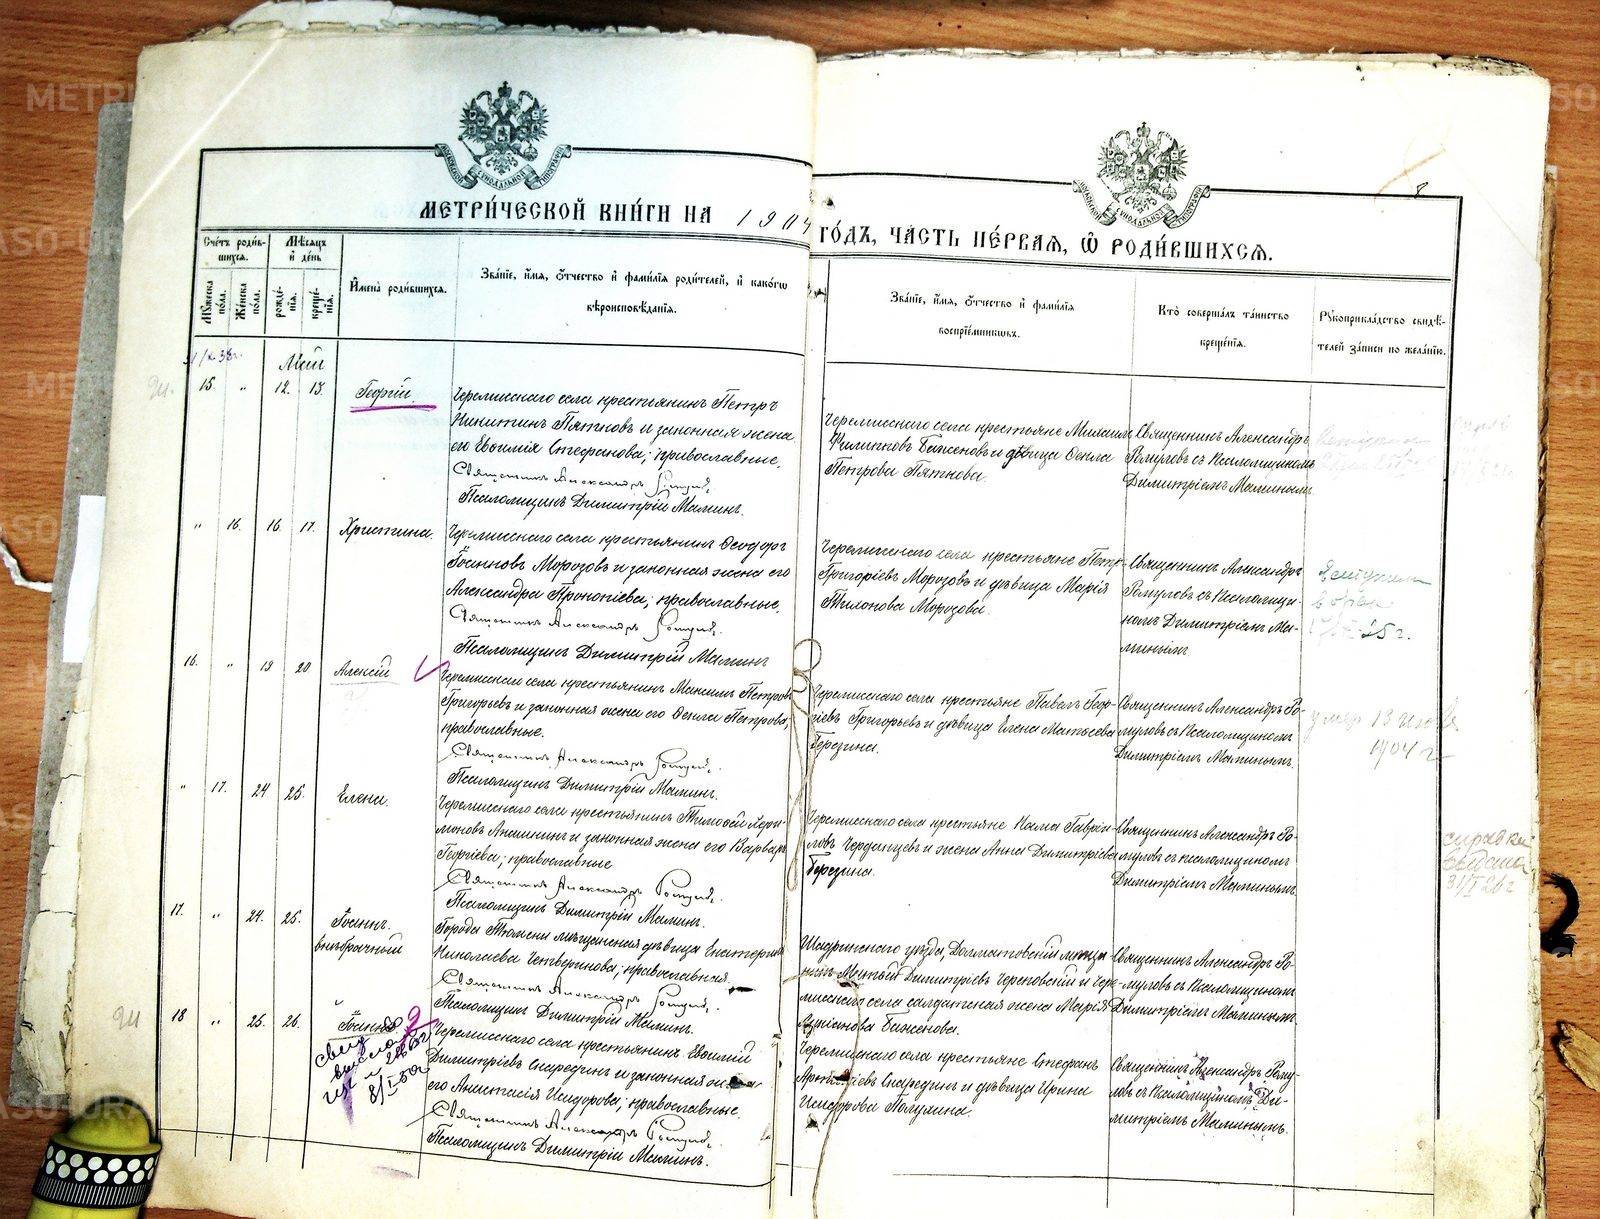 МЕТРИ́ЧЕСКОЙ КНИ́ГИ НА 1904
ГО́ДЪ, ЧА́СТЬ ПЕ́РВАЯ, Ѿ РОДИ́ВШИХСЯ.
8
Сче́тъ роди́в-
шихся.
Мѣ́сяцъ
и҆ де́нь
Му́жеска по́ла.
Же́нска по́ла.
рожде́-
нїя.
креще́-
нїя.
И҆мена̀ роди́вшихся.
Зва́нїе, и҆́мя, ѻ҆́тчество и҆ фамі́лїя роди́телей, и҆ како́гѡ
вѣроисповѣ́данїя.
Зва́нїе, и҆́мя, ѻ҆́тчество и҆ фамі́лїя
воспрїе́мниковъ.
Кто̀ соверша́лъ та́инство
креще́нїя.
Рꙋкоприкла́дство свидѣ́-
телей за́писи по жела́нїю.
Май
15. „ 12. 13. Георгій.
Черемисскаго села крестьянинъ Петръ
Никитинъ Пятковъ и законная жена
его Евфимія Стефанова; православные.
Священникъ Александръ
Псаломщикъ Димитрій Маминъ.
Черемисскаго села крестьяне Михаилъ
Филипповъ Баженовъ и дѣвица Фекла
Петрова Пяткова.
Священникъ Александръ
Ромуловъ съ псаломщикомъ
Димитріемъ Маминымъ.
„ 16. 16. 17. Христина.
Черемисскаго села крестьянинъ Феодоръ
Іоанновъ Морозовъ и законная жена его
Александра Прокопіева; православные.
Священникъ Александръ
Псаломщикъ Димитрій Маминъ
Черемисскаго села крестьяне Петръ
Григоріевъ Морозовъ и дѣвица Марія
Филонова Морозова.
Священникъ Александръ
Ромуловъ съ псаломщи-
комъ Димитріемъ Ма-
минымъ
16. „ 19 20. Алексій
Черемисскаго села крестьянинъ Максимъ Петровъ
Григорьевъ и законная жена его Фекла Петрова;
православные.
Священникъ Александръ
Псаломщикъ Димитрій Маминъ.
Черемисскаго села крестьяне Павелъ Геор-
гіевъ Григорьевъ и дѣвица Елена Матѳеева
Березина.
Священникъ Александръ Ро-
муловъ съ псаломщикомъ
Димитріемъ Маминымъ.
умер 13
1904 г
„ 17. 24 25. Елена.
Черемисскаго села крестьянинъ Тимоѳей
Аникинъ и законная жена его Варвара
Георгіева; православные
Священникъ Александръ
Псаломщикъ Димитрій Маминъ.
Черемисскаго села крестьяне Гаврiи-
ловъ Черданцевъ и жена Анна Димитріева
Березина.
Священникъ Александръ Ро-
муловъ съ псаломщикомъ
Димитріемъ Маминымъ.
справка
31/I 26 г
17. „ 24. 25. Іоаннъ.
внѣбрачный
Города Тюмени мѣщанская дѣвица Екатерина
Николаева Четверикова; православная.
Священникъ Александръ
Псаломщикъ Димитрій Маминъ.
Шадринскаго уѣзда, Далматовскій мѣща-
нинъ Димитріевъ и Чере-
мисскаго села солдатская жена Марія
Баженова.
Священникъ Александръ Ро-
муловъ съ псаломщикомъ
Димитріемъ Маминымъ.
18 „ 25. 26. Іоаннъ
Черемисскаго села крестьянинъ Евфимій
Димитріевъ Снарединъ и законная жена
его Анастасія Исидорова; православные.
Священникъ Александръ
Псаломщикъ Димитрій Маминъ.
Черемисскаго села крестьяне Стефанъ
Снарединъ и дѣвица Ирина
Исидорова Полузина.
Священникъ Александръ Рому-
ловъ съ псаломщикомъ Ди-
митріемъ Маминымъ.